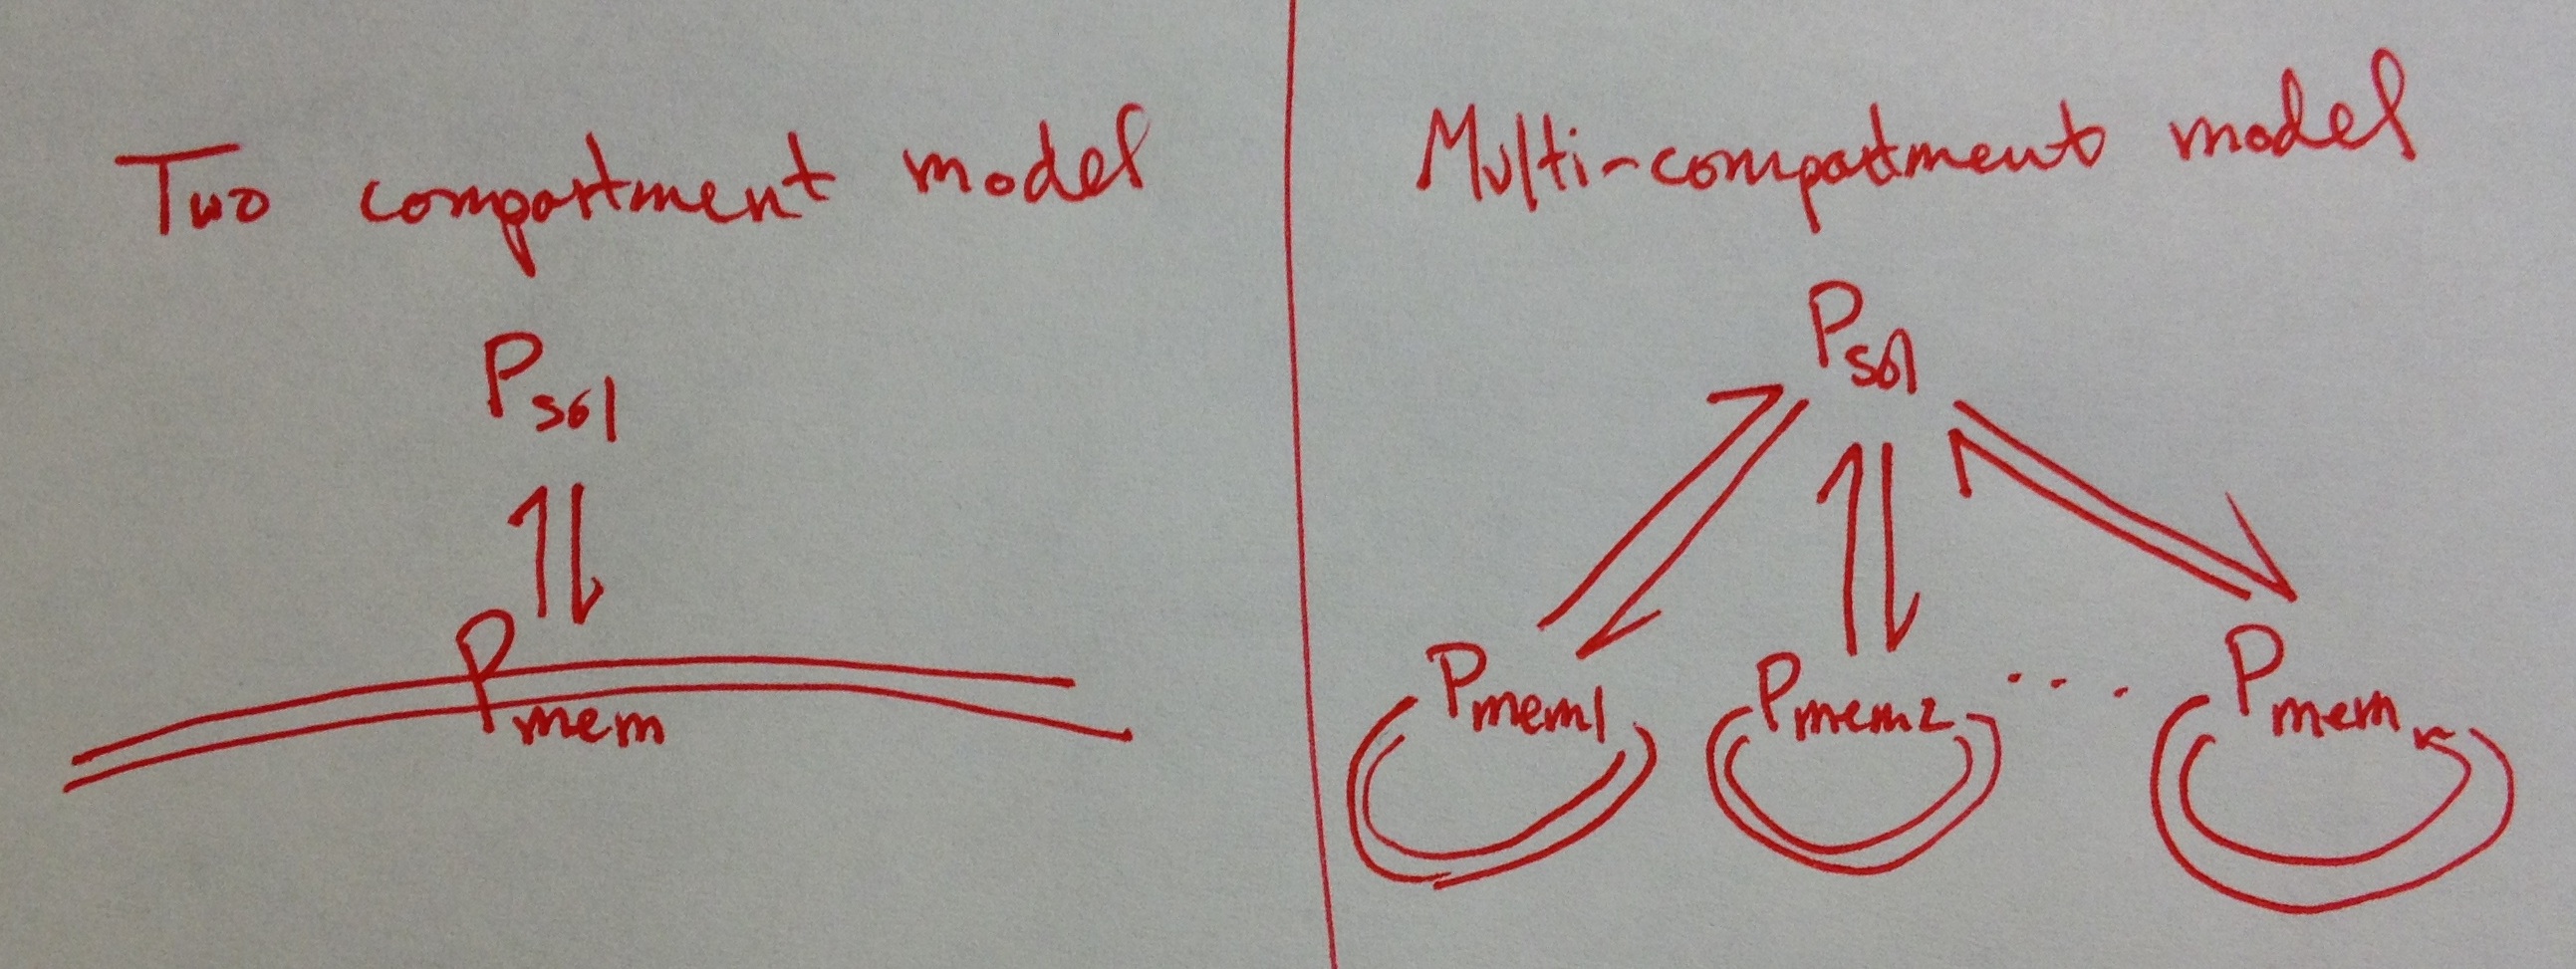 Two compartment model
Psol
Pmem
Multi-compartment model
Psol
Pmem1 Pmem2 ... Pmem